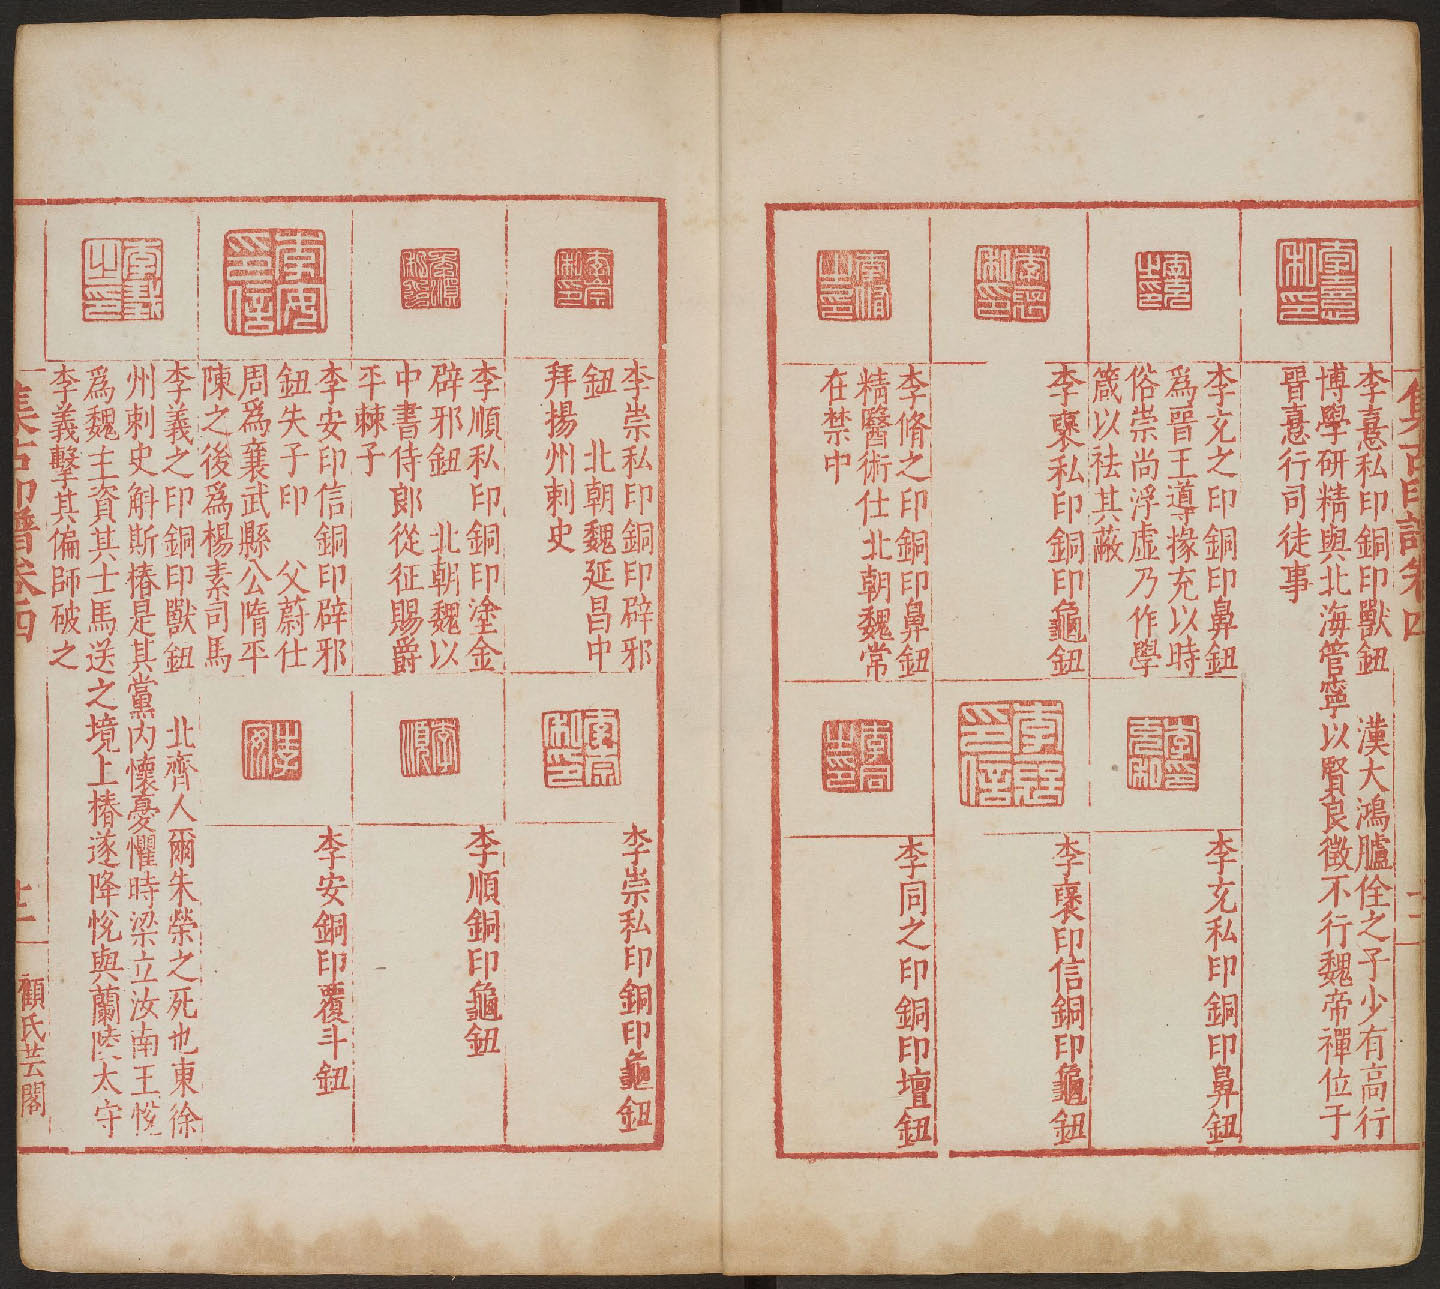 集古印譜卷四
李憙私印銅印獸鈕　漢大鴻臚佺之子少有高行
博學研精與北海管寧以賢良徵不行魏帝禪位于
晉憙行司徒事
李充之印銅印鼻鈕
爲晉王導掾充以時
俗崇尚浮虛乃作學
箴以祛其蔽
李充私印銅印鼻鈕
李褽私印銅印龜鈕
李褽印信銅印龜鈕
李脩之印銅印鼻鈕
精醫術仕北朝魏常
在禁中
李同之印銅印壇鈕
李崇私印銅印辟邪
鈕　北朝魏延昌中
拜揚州刺史
李崇私印銅印龜鈕
李順私印銅印塗金
辟邪鈕　北朝魏以
中書侍郎從征賜爵
平棘子
李順銅印龜鈕
李安印信銅印辟邪
鈕失子印　父蔚仕
周爲襄武縣公隋平
陳之後爲楊素司馬
李安銅印覆斗鈕
李義之印銅印獸鈕　北齊人爾朱榮之死也東徐
州刺史斛斯椿是其黨內懷憂懼時梁立汝南王悅
爲魏主資其士馬送之境上椿遂降悅與蘭陵太守
李義擊其偏師破之
集古印譜卷四
十二
顧氏芸閣